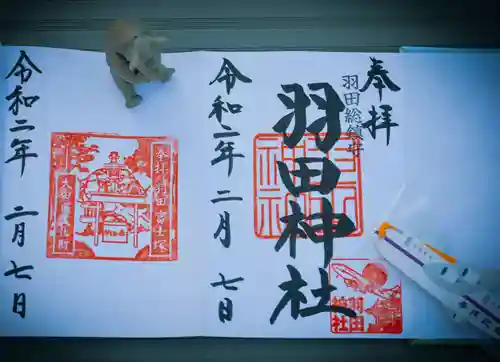 奉拝
羽田総鎮守
羽田神社
令和二年 二月 七日
奉拝 羽田富士塚
令和二年 二月 七日
羽田